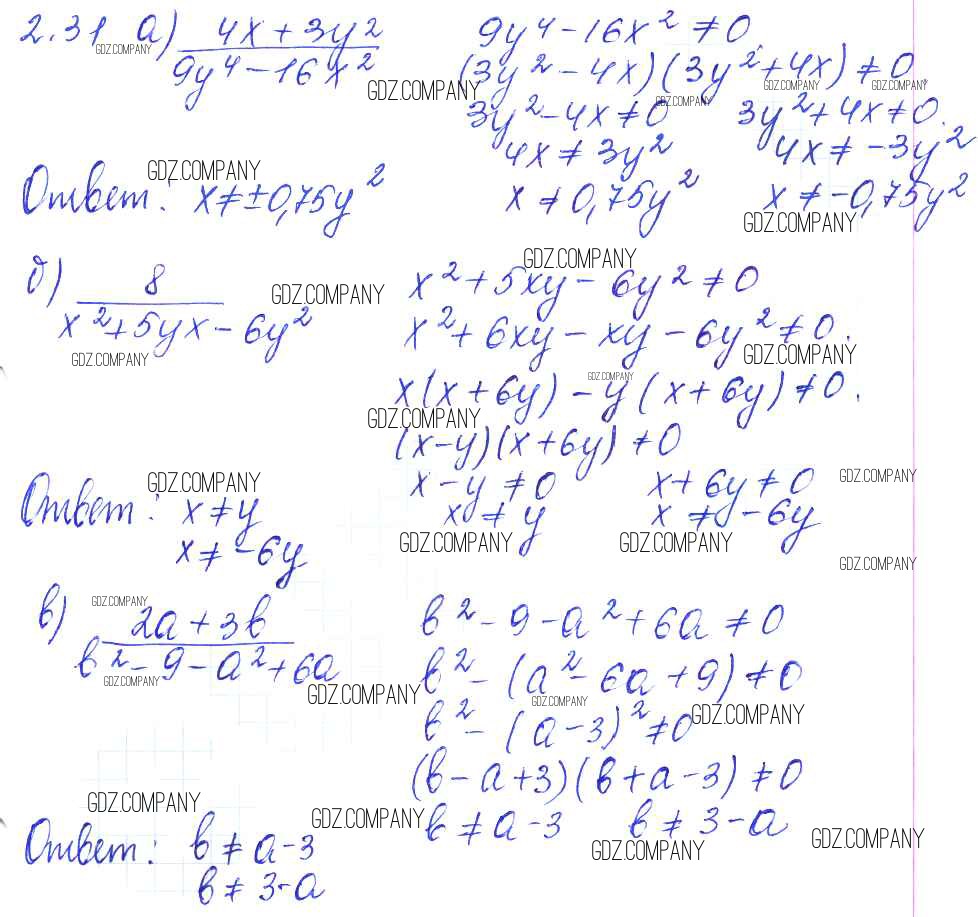 2.31 а) (4x + 3y²)/(9y⁴ - 16x²)
9y⁴ - 16x² ≠ 0
(3y² - 4x)(3y² + 4x) ≠ 0.
3y² - 4x ≠ 0 3y² + 4x ≠ 0.
4x ≠ 3y² 4x ≠ -3y²
x ≠ 0,75y² x ≠ -0,75y²
Ответ: x ≠ ±0,75y²
б) 8/(x² + 5yx - 6y²)
x² + 5xy - 6y² ≠ 0
x² + 6xy - xy - 6y² ≠ 0.
x(x + 6y) - y(x + 6y) ≠ 0.
(x - y)(x + 6y) ≠ 0
x - y ≠ 0 x + 6y ≠ 0
x ≠ y x ≠ -6y
Ответ: x ≠ y
x ≠ -6y
в) (2a + 3b)/(b² - 9 - a² + 6a)
b² - 9 - a² + 6a ≠ 0
b² - (a² - 6a + 9) ≠ 0
b² - (a - 3)² ≠ 0
(b - a + 3)(b + a - 3) ≠ 0
b ≠ a - 3 b ≠ 3 - a
Ответ: b ≠ a - 3
b ≠ 3 - a
GDZ.COMPANY